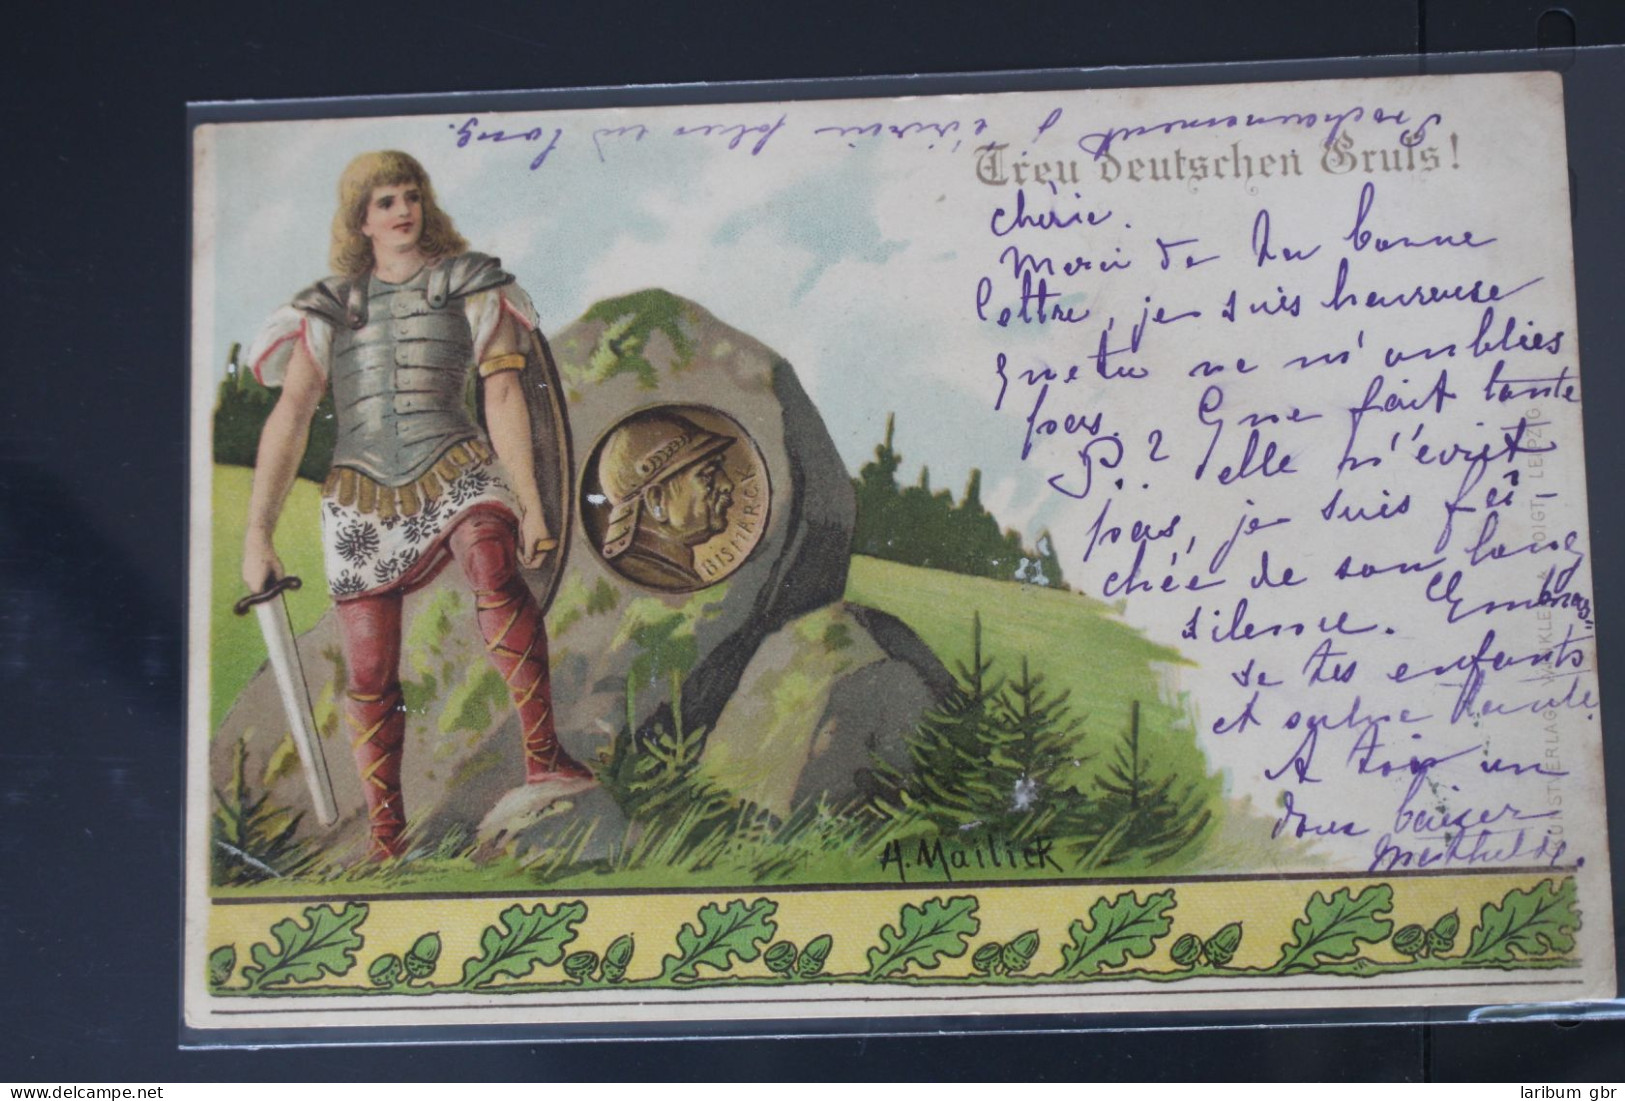 Treu deutschen Gruß!
Chérie.
Merci de ta bonne
lettre, je suis heureuse
que tu ne m'oublies
pas. Que fait tante
P.?? elle n'écrit
pas, je suis fâ-
chée de son long
silence. Embras-
se tes enfants
et salue tante.
A toi un
doux baiser
Mathilde.
Prochainement j'écrirai plus long.
BISMARCK
A. Mailick
KUNSTVERLAG WINKLER & VOIGT, LEIPZIG
laribum gbr